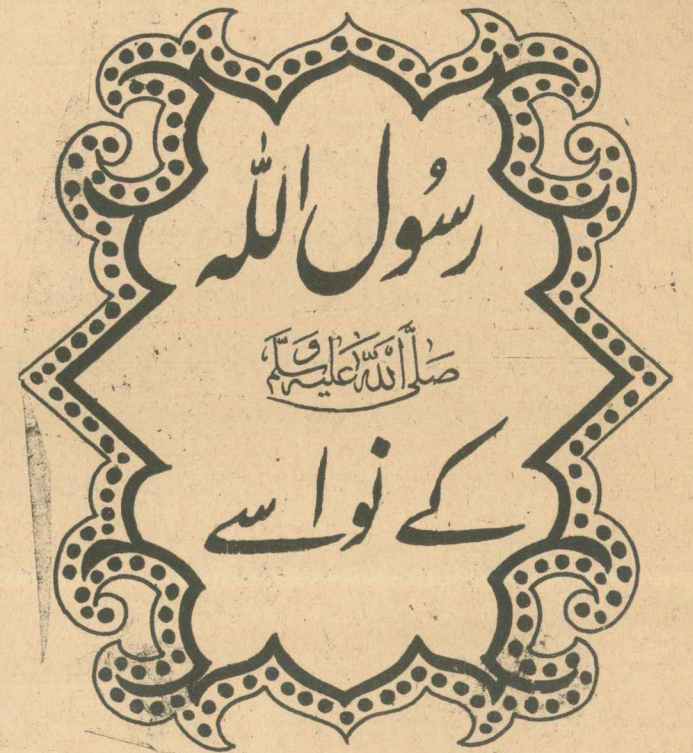 رسُول اللہ
صَلَّى اللّٰهُ عَلَيْهِ وَسَلَّم
کے نواسے